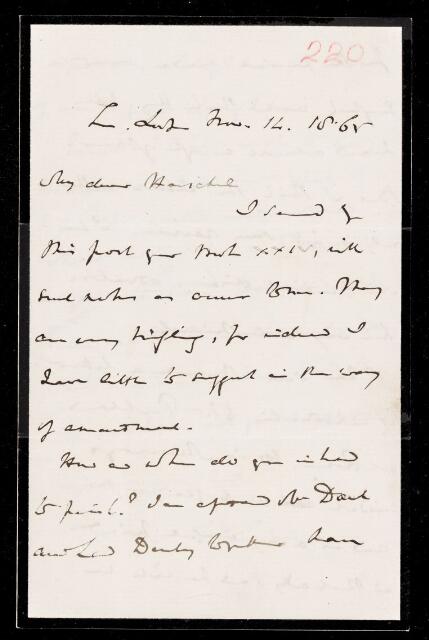 220
Nov. 14. 1865
My dear Herschel
I send by
this post your Book XXI, with
such notes as occur to me. They
are very trifling, for indeed I
have little to suggest in the way
of amendment.
How or when do you intend
to print? I am afraid
and Lord Derby together have